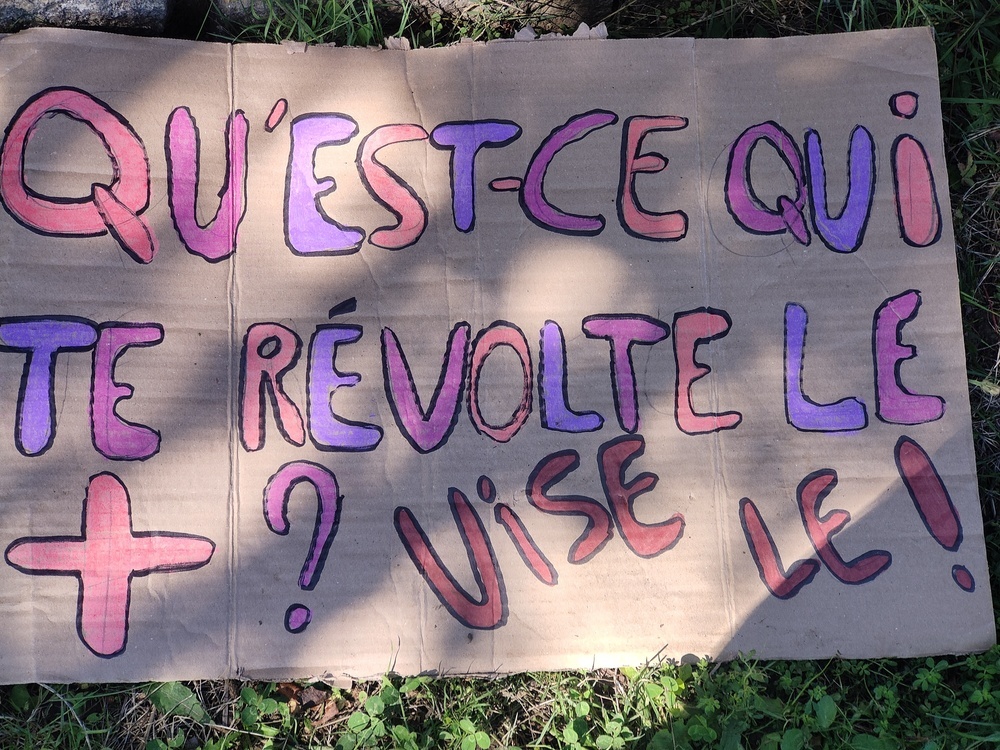 QU'EST-CE QUi
TE RÉVOLTE LE
+ ? ViSE LE !